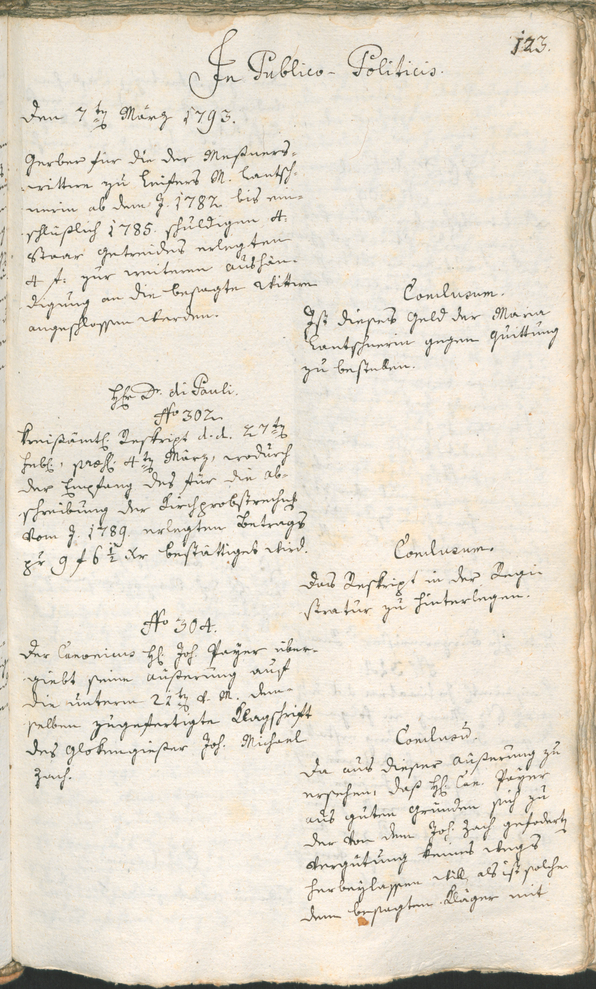 123.
In Publico-Politicis.
Den 7ten März 1793.
Gerber für die der Meßners-
wittwe zu Leifers M. Lantsch-
nerin ab dem J. 1782 bis ein-
schlüßlich 1785 schuldigen 4
Staar Getreides erlegten
4 f. zur weitern aushän-
digung an die besagte Wittwe
angeschlossen werden.
Conclusum.
Ist dieses Geld der Maria
Lantschnerin gegen Quittung
zu bestellen.
H. Dr. di Pauli.
No 302.
Kreisämtl. Reskript d. d. 27ten
Feb., praes. 4ten März, wodurch
der Empfang des für die ab-
schreibung der Kirchprobstrechng
vom J. 1789 erlegten Betrags
pr 9 f 6 1/2 Kr bestättiget wird.
Conclusum.
Das Reskript in der Regi-
stratur zu hinterlegen.
No 304.
Der Canonicus H. Joh Payer über-
giebt seine äußerung auf
die unterm v. M. dem-
selben zugefertigte Klagschrift
des Glokengießer Joh. Michael
Zach.
Conclusū.
Da aus dieser äußerung zu
ersehen, daß H. Can. Payer
aus guten Gründen sich zu
der von dem Joh. Zach geforderten
Vergütung keines wegs
herbeylassen will, als ist solche
dem besagten Kläger mit